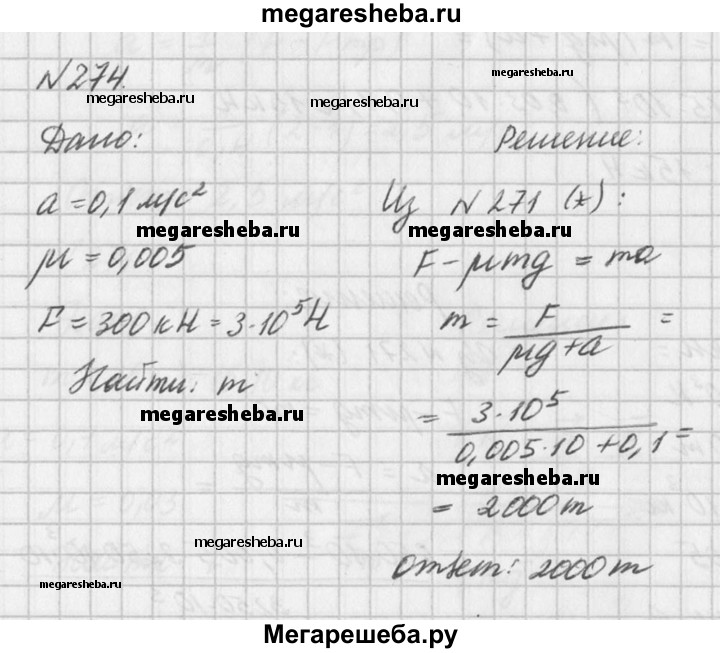 megaresheba.ru
№274.
megaresheba.ru
megaresheba.ru
megaresheba.ru
Дано:
Решение:
a = 0,1 м/с²
Из №271 (*):
megaresheba.ru
megaresheba.ru
μ = 0,005
F - μmg = ma
F = 300 кН = 3·10⁵ Н
m = F / (μg + a) =
Найти: m
megaresheba.ru
= 3·10⁵ / (0,005·10 + 0,1) =
megaresheba.ru
= 2000 т
megaresheba.ru
Ответ: 2000 т
megaresheba.ru
Мегарешеба.ру